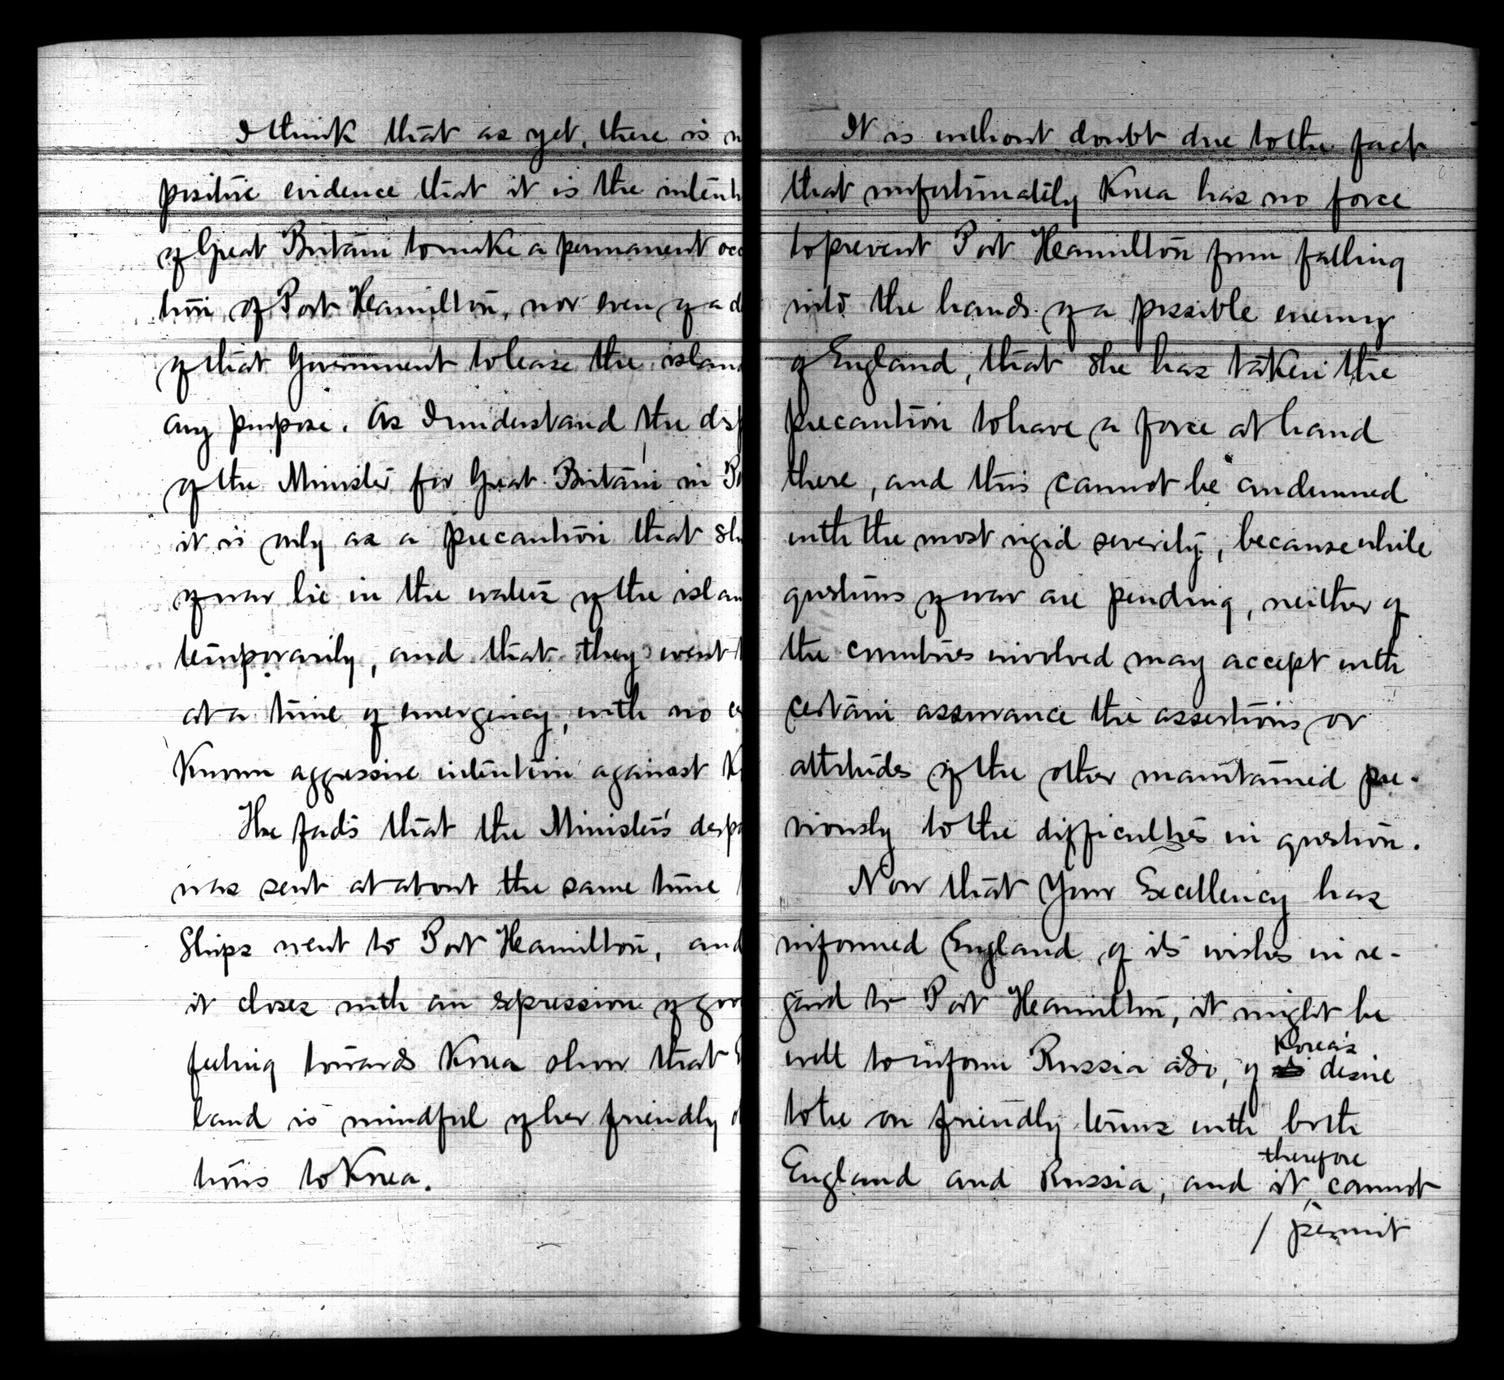 I think that as yet, there is n
positive evidence that it is the intent
of Great Britain to make a permanent occ
tion of Port Hamilton, nor even of a d
of that Government to lease the islan
any purpose. As I understand the dis
of the Minister for Great Britain in P
it is only as a precaution that sh
of war lie in the waters of the islan
temporarily, and that they went t
at a time of emergency, with no
Known aggressive intention against K
The facts that the Minister's desp
was sent at about the same time
Ships went to Port Hamilton, and
it closes with an expression of goo
feeling towards Korea show that
land is mindful of her friendly
tions to Korea.
It is without doubt due to the fact
that unfortunately Korea has no force
to prevent Port Hamilton from falling
into the hands of a possible enemy
of England, that she has taken the
precaution to have a force at hand
there, and this cannot be condemned
with the most rigid severity, because while
questions of war are pending, neither of
the countries involved may accept with
certain assurance the assertions or
attitudes of the other maintained pre-
viously to the difficulties in question.
Now that Your Excellency has
informed England of its wishes in re-
gard to Port Hamilton, it might be
well to inform Russia also, of Korea's desire
to be on friendly terms with both
England and Russia, and it therefore cannot
/ permit